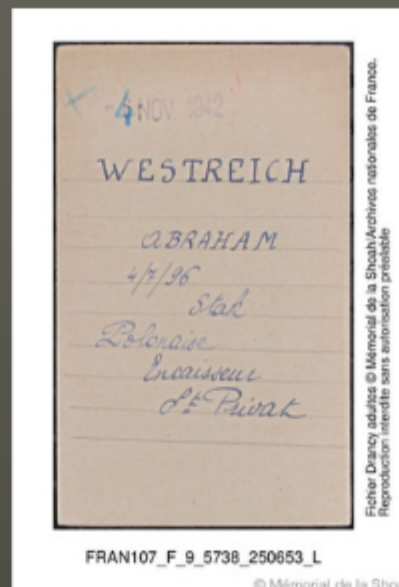 -4 NOV. 1942
WESTREICH
ABRAHAM
4/7/96
Stak
Polonaise
Encaisseur
St Privat
Fichier Drancy adultes © Mémorial de la Shoah/Archives nationales de France.
Reproduction interdite sans autorisation préalable
FRAN107_F_9_5738_250653_L
© Mémorial de la Shoa